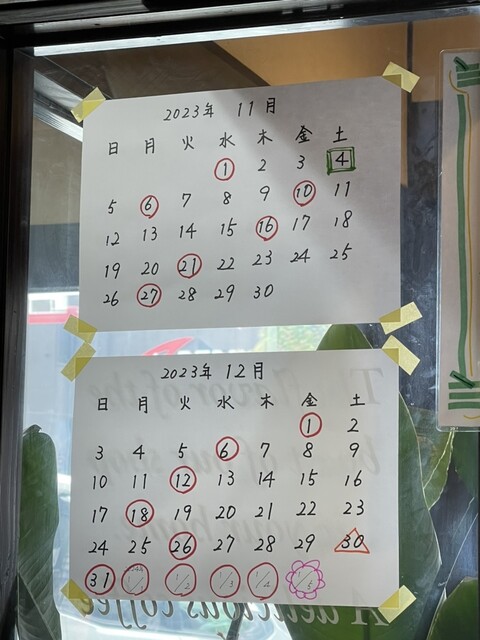 2023年 11月
日 月 火 水 木 金 土
1 2 3 4
5 6 7 8 9 10 11
12 13 14 15 16 17 18
19 20 21 22 23 24 25
26 27 28 29 30
2023年 12月
日 月 火 水 木 金 土
1 2
3 4 5 6 7 8 9
10 11 12 13 14 15 16
17 18 19 20 21 22 23
24 25 26 27 28 29 30
31 1/2 1/3 1/4 1/5
A delicious coffee